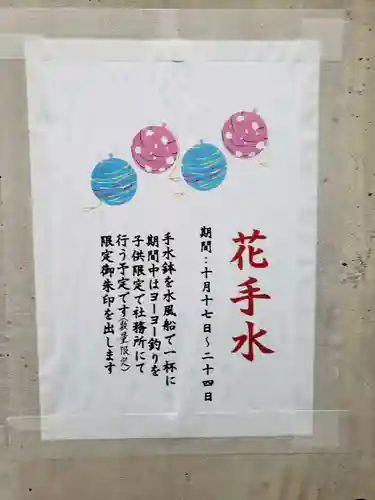 花手水
期間：十月十七日～二十四日
手水鉢を水風船で一杯に
期間中はヨーヨー釣りを
子供限定で社務所にて
行う予定です(数量限定)
限定御朱印を出します